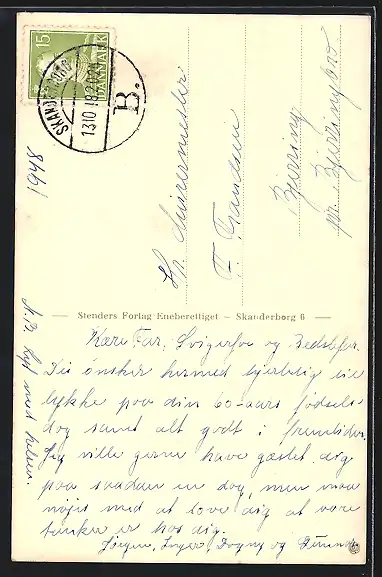 15
DANMARK
SKANDERBORG
B.
1948
Hr. Murermester
F. Frandsen
Bjerring
pr. Bjerringbro
Stenders Forlag Eneberettiget – Skanderborg 6
Kære Far, Svigerfar og Bedstefar.
Vi ønsker hermed hjertelig til
lykke paa din 60-aars fødsels-
dag samt alt godt i fremtiden
Jeg ville gerne have gæstet dig
paa saadan en dag, men maa
nøjes med at love dig at vore
tanker er hos dig.
Jørgen, Inger, Dagny og